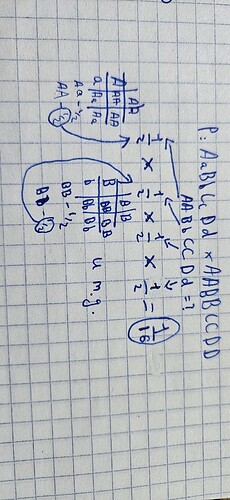 P: AaBbCcDd x AABBCCDD
AABbCCDd = ?
1/2 x 1/2 x 1/2 x 1/2 = 1/16
A A
A AA AA
a Aa Aa
Aa - 1/2
AA - 1/2
B B
B BB BB
b Bb Bb
BB - 1/2
Bb - 1/2
и т.д.